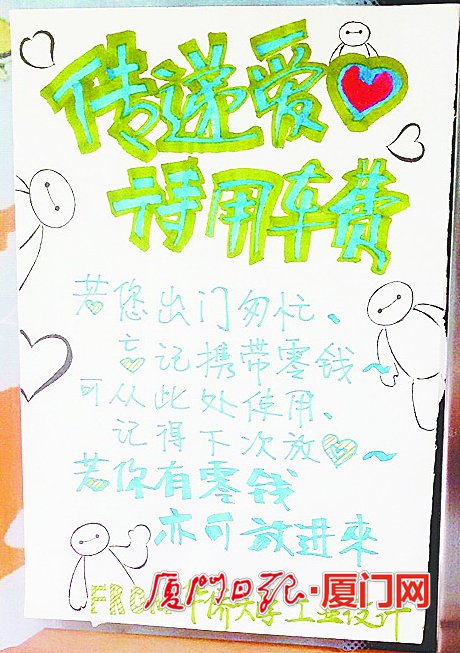 传递爱
待用车费
若您出门匆忙、
忘记携带零钱～
可从此处使用、
记得下次放～
若你有零钱
亦可放进来
FROM 华侨大学工业设计
厦门日报·厦门网